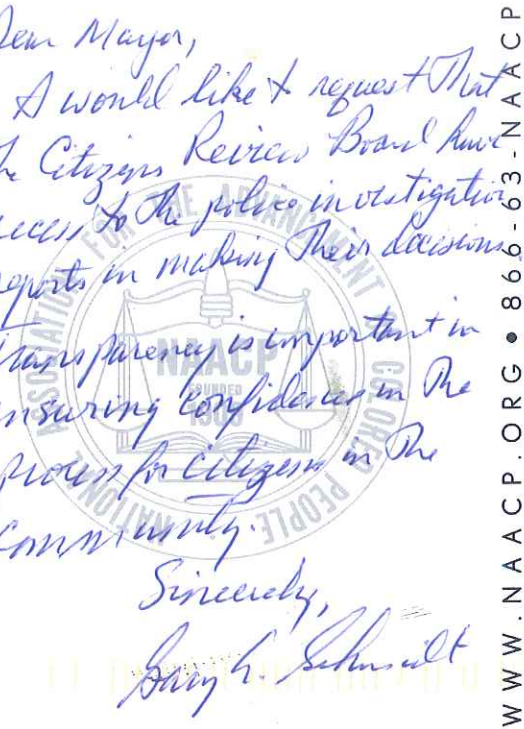 Dear Mayor,
I would like to request That
The Citizens Review Board have
access to The police investigation
reports in making Their decisions.
Transparency is important in
ensuring confidence in The
process for citizens in The
community.
Sincerely,
Gary L. Schmidt
NATIONAL ASSOCIATION FOR THE ADVANCEMENT OF COLORED PEOPLE
NAACP
FOUNDED
1909
WWW.NAACP.ORG • 866-63-NAACP